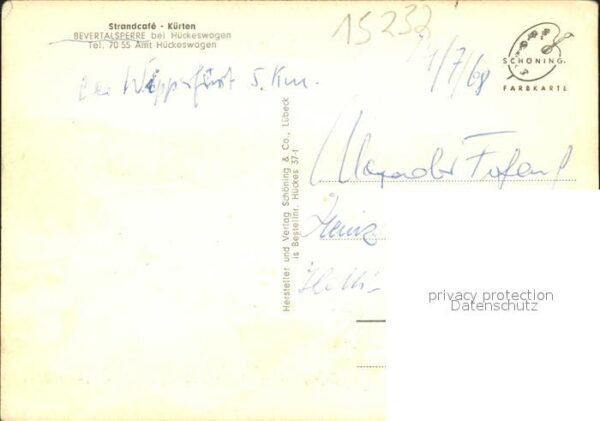 Strandcafé - Kürten
BEVERTALSPERRE bei Hückeswagen
Tel. 70 55 Amt Hückeswagen
15232
1/7/68
SCHÖNING
FARBKARTE
bei Wipperfürt 5 Km.
Hersteller und Verlag Schöning & Co., Lübeck
is Bestellnr. Hückes 37-1
Alexander
Heinz
privacy protection
Datenschutz